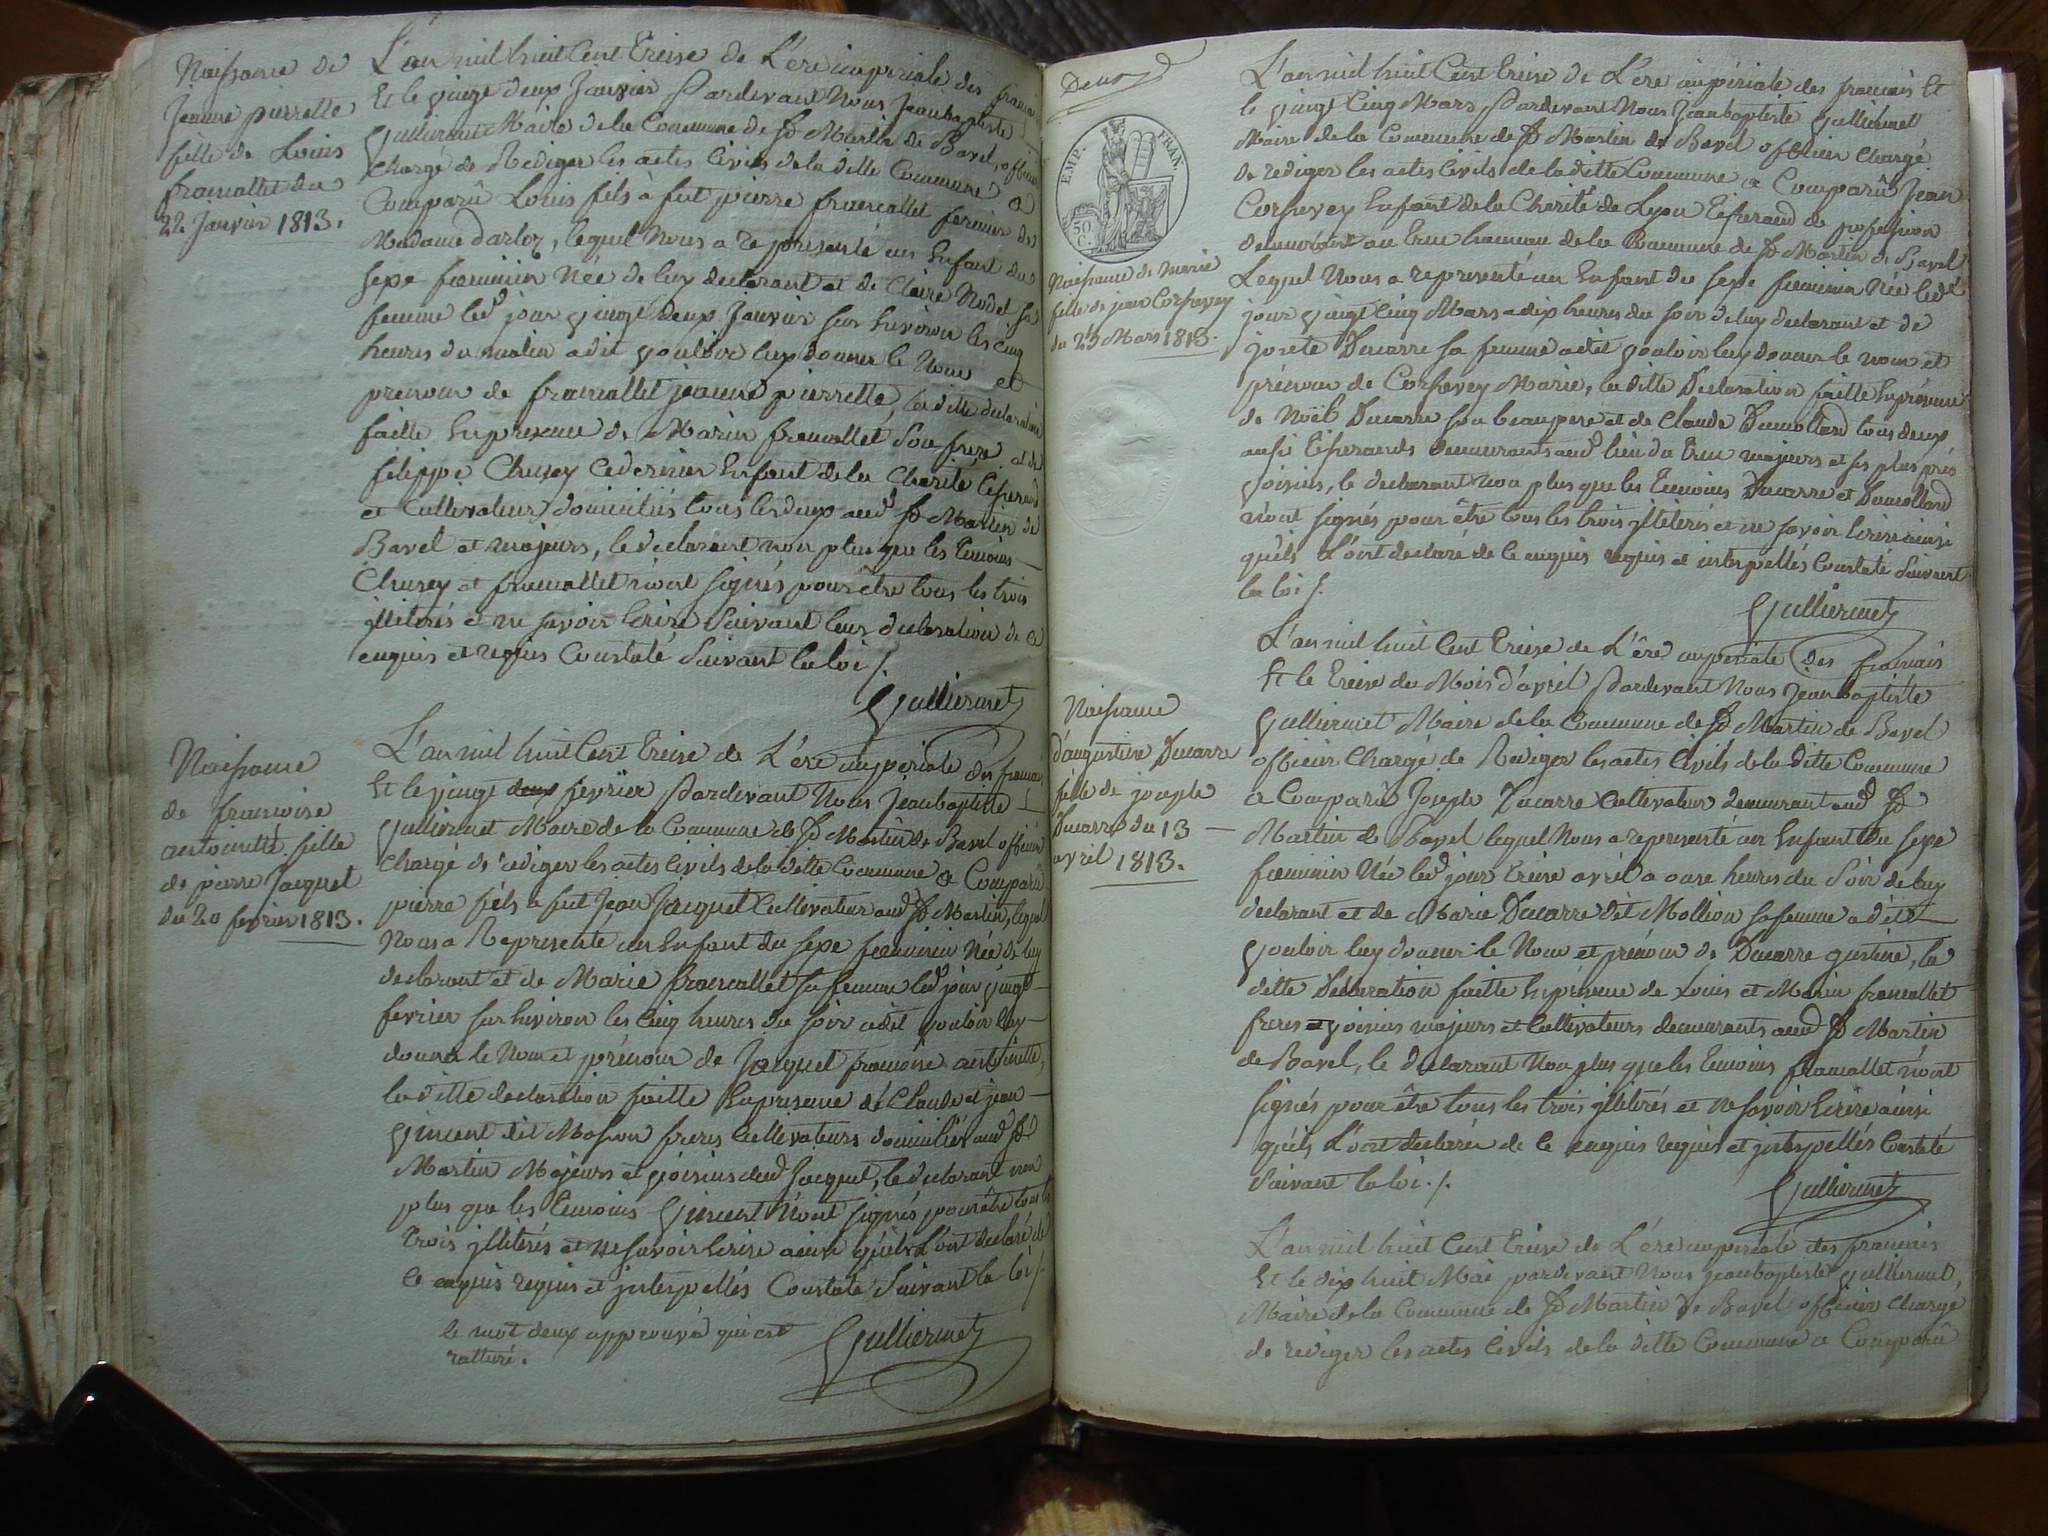 Naissance de
jeanne pierrette
fille de Louis
francallet du
22 Janvier 1813.
L'an mil huit Cent treise de L'ére imperiale des francais
Et le vingt deux Janvier Pardevant Nous Jeanbaptiste
Gulliermet Maire de la Commune de St Martin de Bavel, officier
Chargé de Rediger les actes Civils de la ditte Commune a
Comparû Louis fils à fut pierre francallet fermier de
Madame Darloz, lequel Nous a representé un Enfant du
sexe foeminin Née de luy declarant et de Claire Nodet sa
femme led jour vingt deux Janvier sur Environ les cinq
heures du matin a dit vouloir luy donner le Nom et
prenom de francallet jeanne pierrette, la ditte declaration
faitte En presence de Marin francallet son frere et de
filippe Chusey ce dernier Enfant de la Charité
et Cultivateurs domiciliés tous les deux aud St Martin de
Bavel et majeurs, le declarant non plus que les temoins
Chusey et francallet n'ont signés pour être tous les trois
illiterés et ne savoir Ecrire Suivant leur declaration de ce
enquis et requis Constaté Suivant la loi ./.
Gulliermet
Naissance
de francoise
antoinette fille
de pierre Jacquet
du 20 fevrier 1813.
L'an mil huit Cent treise de L'ére imperiale des francais
Et le vingt deux fevrier Pardevant Nous Jeanbaptiste
Gulliermet Maire de la Commune de St Martin de Bavel officier
Chargé de rediger les actes Civils de la ditte Commune a Comparû
pierre fils a fut Jean Jacquet Cultivateur aud St Martin, lequel
Nous a Representé un Enfant du sexe foeminin Née de luy
declarant et de Marie francallet sa femme led jour vingt
fevrier sur Environ les cinq heures du soir a dit vouloir luy
donner le Nom et prénom de Jacquet francoise antoinette,
la ditte declaration faitte En presence de Claude et jean
Vincent dit Masson freres Cultivateurs domiciliés aud St
Martin Majeurs et voisins dud Jacquet, le declarant non
plus que les temoins Vincent n'ont signés pour être tous les
trois illiterés et ne savoir Ecrire ainsi qu'ils L'ont declaré de
ce enquis requis et interpellés Constaté Suivant la loi ./.
le mot deux approuvé qui est
ratturé.
Gulliermet
Deux
EMP. FRAN.
50 C.
Naissance de marie
fille de jean Corsevey
du 25 Mars 1813.
L'an mil huit Cent treise de L'ére impériale des francais Et
le vingt Cinq Mars, Pardevant Nous Jeanbaptiste Gulliermet
Maire de la Commune de St Martin de Bavel officier Chargé
de rediger les actes Civils de la ditte Commune a Comparû Jean
Corsevey Enfant de la Charité de Lyon de profession
demeurant au truc hameau de la Commune de St Martin de Bavel
Lequel Nous a representé un Enfant du sexe foeminin Née led
jour vingt Cinq Mars a dix heures du soir de luy declarant et de
josete Ducarre sa femme a dit vouloir luy donner le nom et
prénom de Corsevey Marie, la ditte Declaration faitte En présence
de Noël Ducarre son beaupere et de Claude Dumollard tous deux
aussi demeurants aud lieu du truc majeurs et ses plus près
voisins, le declarant non plus que les temoins Ducarre et Dumollard
n'ont signés pour être tous les trois illiterés et ne savoir Ecrire ainsi
qu'ils L'ont declaré de ce enquis requis et interpellés Constaté Suivant
la loi ./.
Gulliermet
Naissance
d'augustine Ducarre
fille de joseph
Ducarre du 13
avril 1813.
L'an mil huit Cent treise de L'êre imperiale des francais
Et le treise du Mois d'avril Pardevant Nous Jeanbaptiste
Gulliermet Maire de la Commune de St Martin de Bavel
officier Chargé de Rediger les actes Civils de la ditte Commune
a Comparû Joseph Ducarre Cultivateur demeurant aud St
Martin de Bavel lequel Nous a representé un Enfant du sexe
foeminin Née led jour treise avril a onze heures du Soir de luy
declarant et de Marie Ducarre dit Mollion sa femme a dit
vouloir luy donner le Nom et prénom de Ducarre gustine, la
ditte Declaration faitte En présence de Louis et Marin francallet
freres voisins majeurs et Cultivateurs demeurants aud St Martin
de Bavel, le declarant Non plus que les temoins francallet n'ont
signés pour être tous les trois illiterés et ne savoir Ecrire ainsi
qu'ils L'ont declaré de ce enquis requis et interpellés Constaté
Suivant la loi ./.
Gulliermet
L'an mil huit Cent treise de L'ére imperiale des francais
Et le dix huit Mai pardevant Nous jeanbaptiste Gulliermet,
Maire de la Commune de St Martin de Bavel officier Chargé
de rediger les actes Civils de la ditte Commune a Comparû